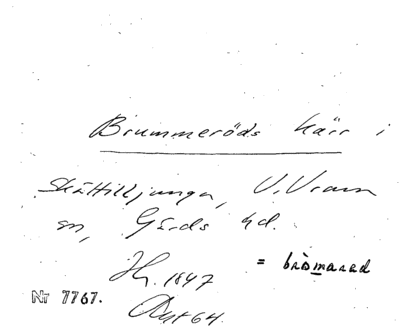 Brummeröds kärr i
Skättilljunga, V. Vram
sn, Gärds hd.
Hr. 1847 = brömared
Nr 7767.
64.